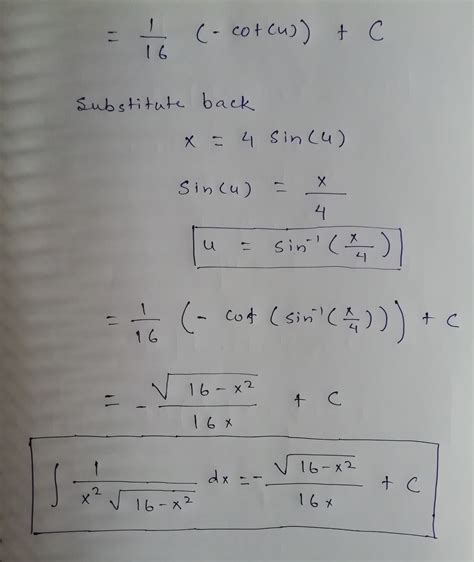 = 1/16 (- cot(u)) + C
Substitute back
x = 4 sin(u)
Sin(u) = x/4
u = sin⁻¹(x/4)
= 1/16 (- cot (sin⁻¹(x/4))) + C
= - √(16-x²)/16x + C
∫ 1/(x²√(16-x²)) dx = - √(16-x²)/16x + C